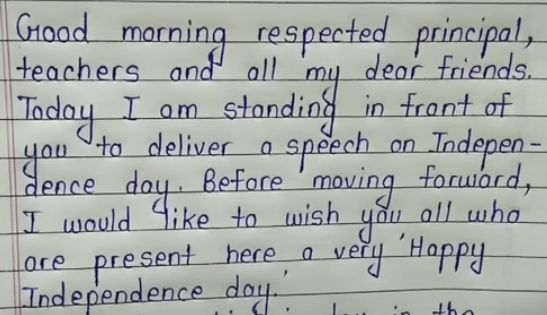 Good morning respected principal,
teachers and all my dear friends.
Today I am standing in front of
you to deliver a speech on Indepen-
dence day. Before moving forward,
I would like to wish you all who
are present here a very 'Happy
Independence day.'
in the